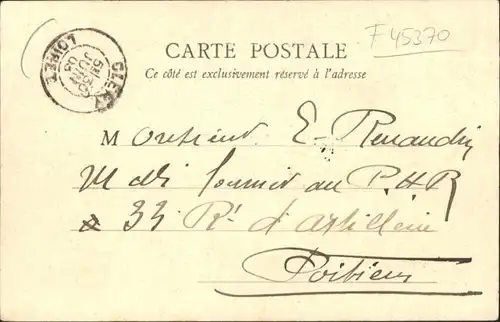 F 45370
CARTE POSTALE
Ce côté est exclusivement réservé à l'adresse
CLERY
LOIRET
5E 30
JUIN
03
Monsieur E. Renaudin
au P.H.R
33 Rt d'artillerie
Poitiers